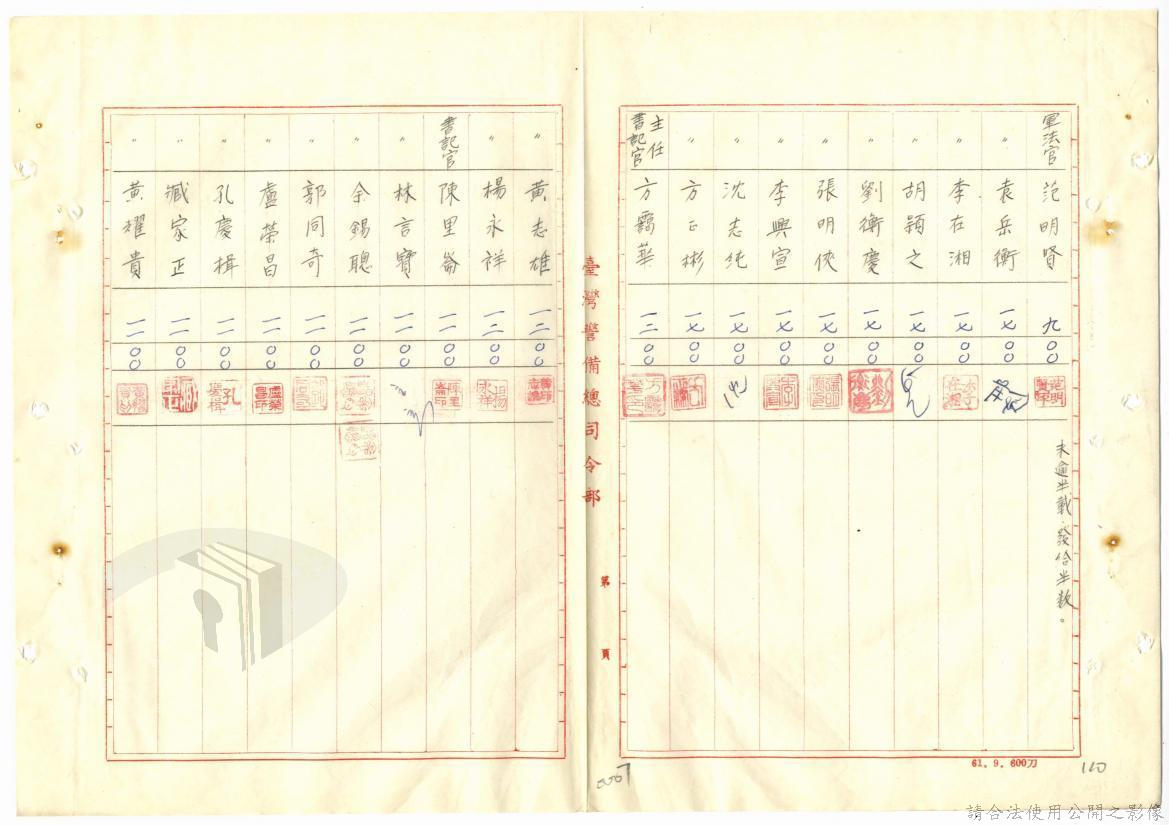 軍法官 范明賢 九〇〇 未逾半載，發給半数。
〃 袁岳衡 一七〇〇
〃 李在湘 一七〇〇
〃 胡穎之 一七〇〇
〃 劉衡慶 一七〇〇
〃 張明俠 一七〇〇
〃 李興宣 一七〇〇
〃 沈志純 一七〇〇
〃 方正彬 一七〇〇
主任書記官 方靄華 一二〇〇
臺灣警備總司令部 第 頁
〃 黃志雄 一二〇〇
〃 楊永祥 一二〇〇
書記官 陳里崙 一一〇〇
〃 林言寶 一一〇〇
〃 余錫聰 一一〇〇
〃 郭同奇 一一〇〇
〃 盧榮昌 一一〇〇
〃 孔慶楫 一一〇〇
〃 臧家正 一一〇〇
〃 黃耀貴 一一〇〇
61. 9. 600刀
110
請合法使用公開之影像